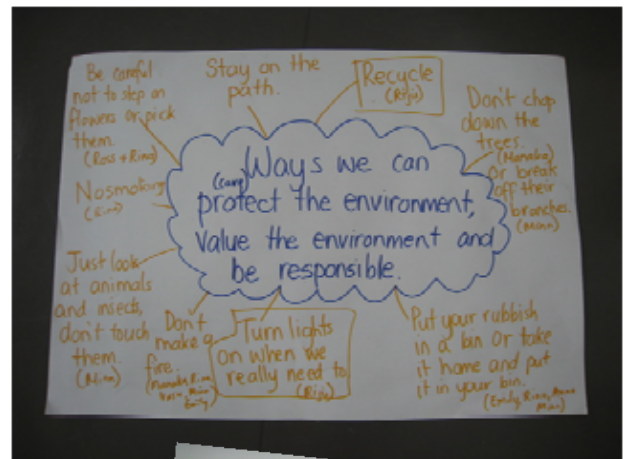 Ways we can
(care)
protect the environment,
value the environment and
be responsible.
Be careful
not to step on
flowers or pick
them.
(Ross + Rino)
Stay on the
path.
Recycle
(Riju)
Don't chop
down the
trees.
(Manaka)
or break
off their
branches.
(Mann)
No smoking
Just look
at animals
and insects,
don't touch
them.
Don't
make a
fire.
Emily
Turn lights
on when we
really need to
(Riju)
Put your rubbish
in a bin or take
it home and put
it in your bin.